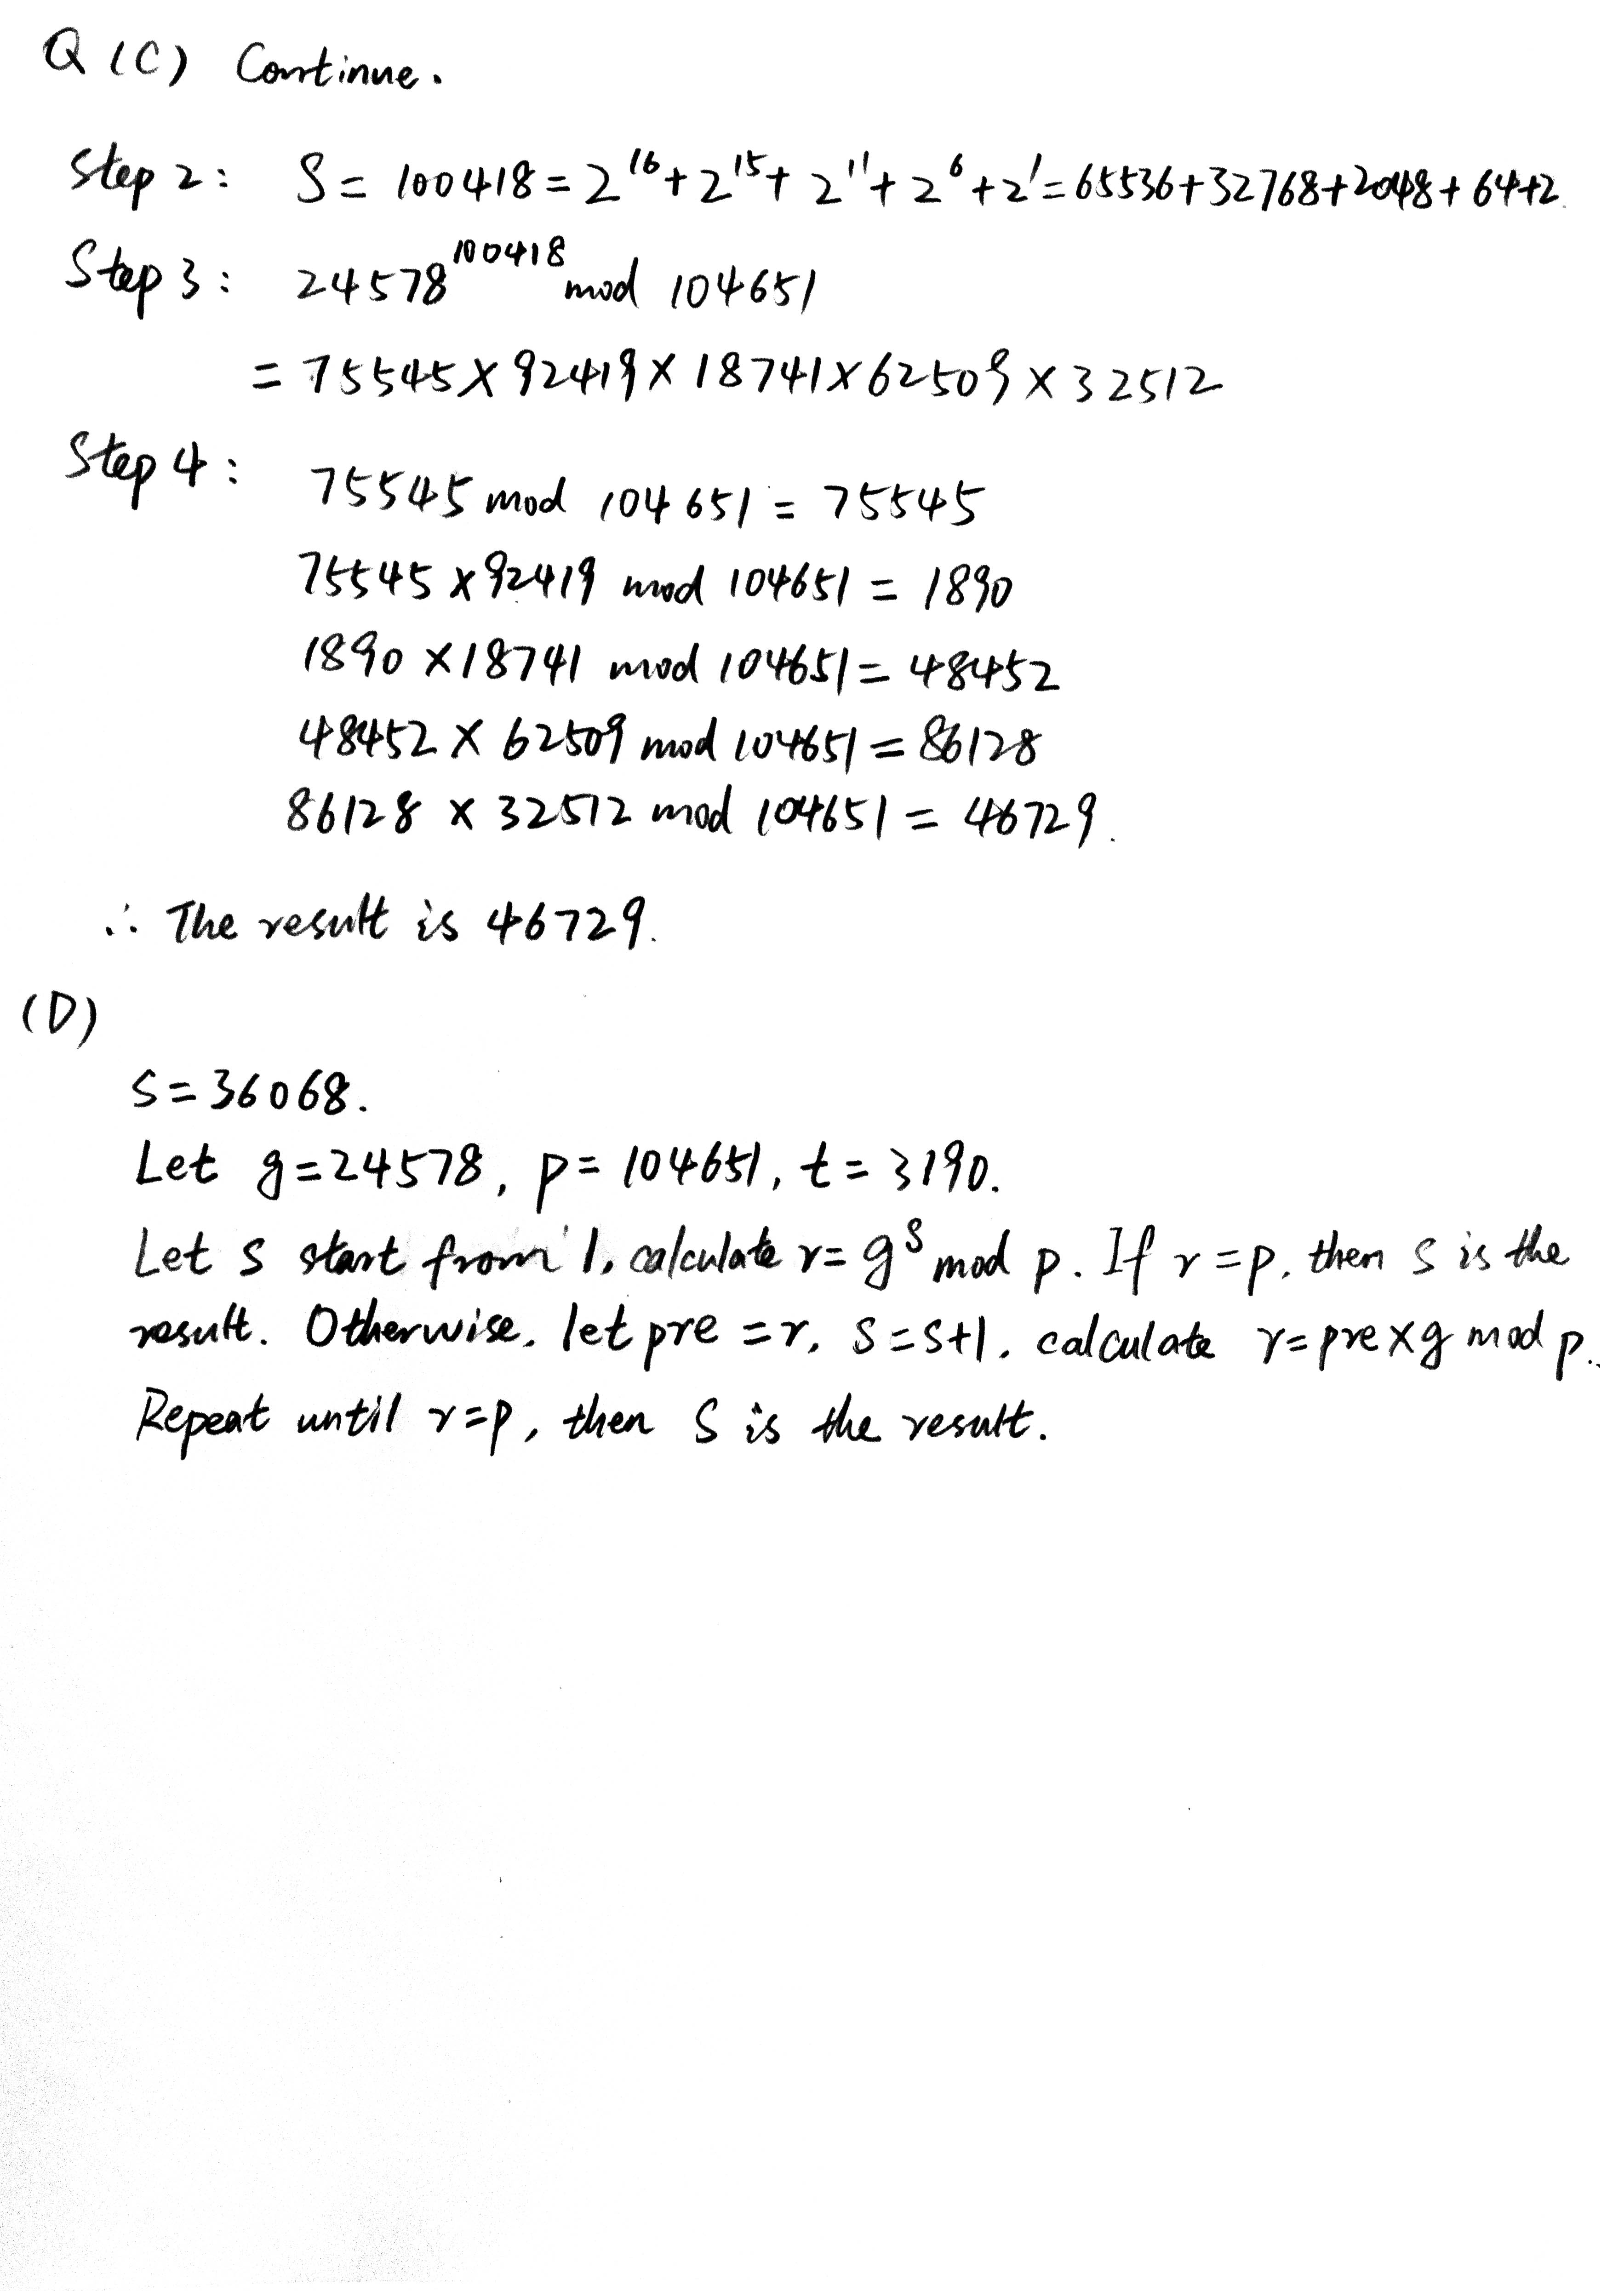 Q (C) Continue.
Step 2: S = 100418 = 2^16 + 2^15 + 2^11 + 2^6 + 2^1 = 65536+32768+2048+64+2.
Step 3: 24578^100418 mod 104651
= 75545 × 92419 × 18741 × 62509 × 32512
Step 4: 75545 mod 104651 = 75545
75545 × 92419 mod 104651 = 1890
1890 × 18741 mod 104651 = 48452
48452 × 62509 mod 104651 = 86128
86128 × 32512 mod 104651 = 46729.
∴ The result is 46729.
(D)
S = 36068.
Let g=24578, p= 104651, t= 3190.
Let s start from 1, calculate r= g^s mod p. If r =p, then s is the
result. Otherwise, let pre =r, s=s+1, calculate r=pre×g mod p.
Repeat until r=p, then S is the result.